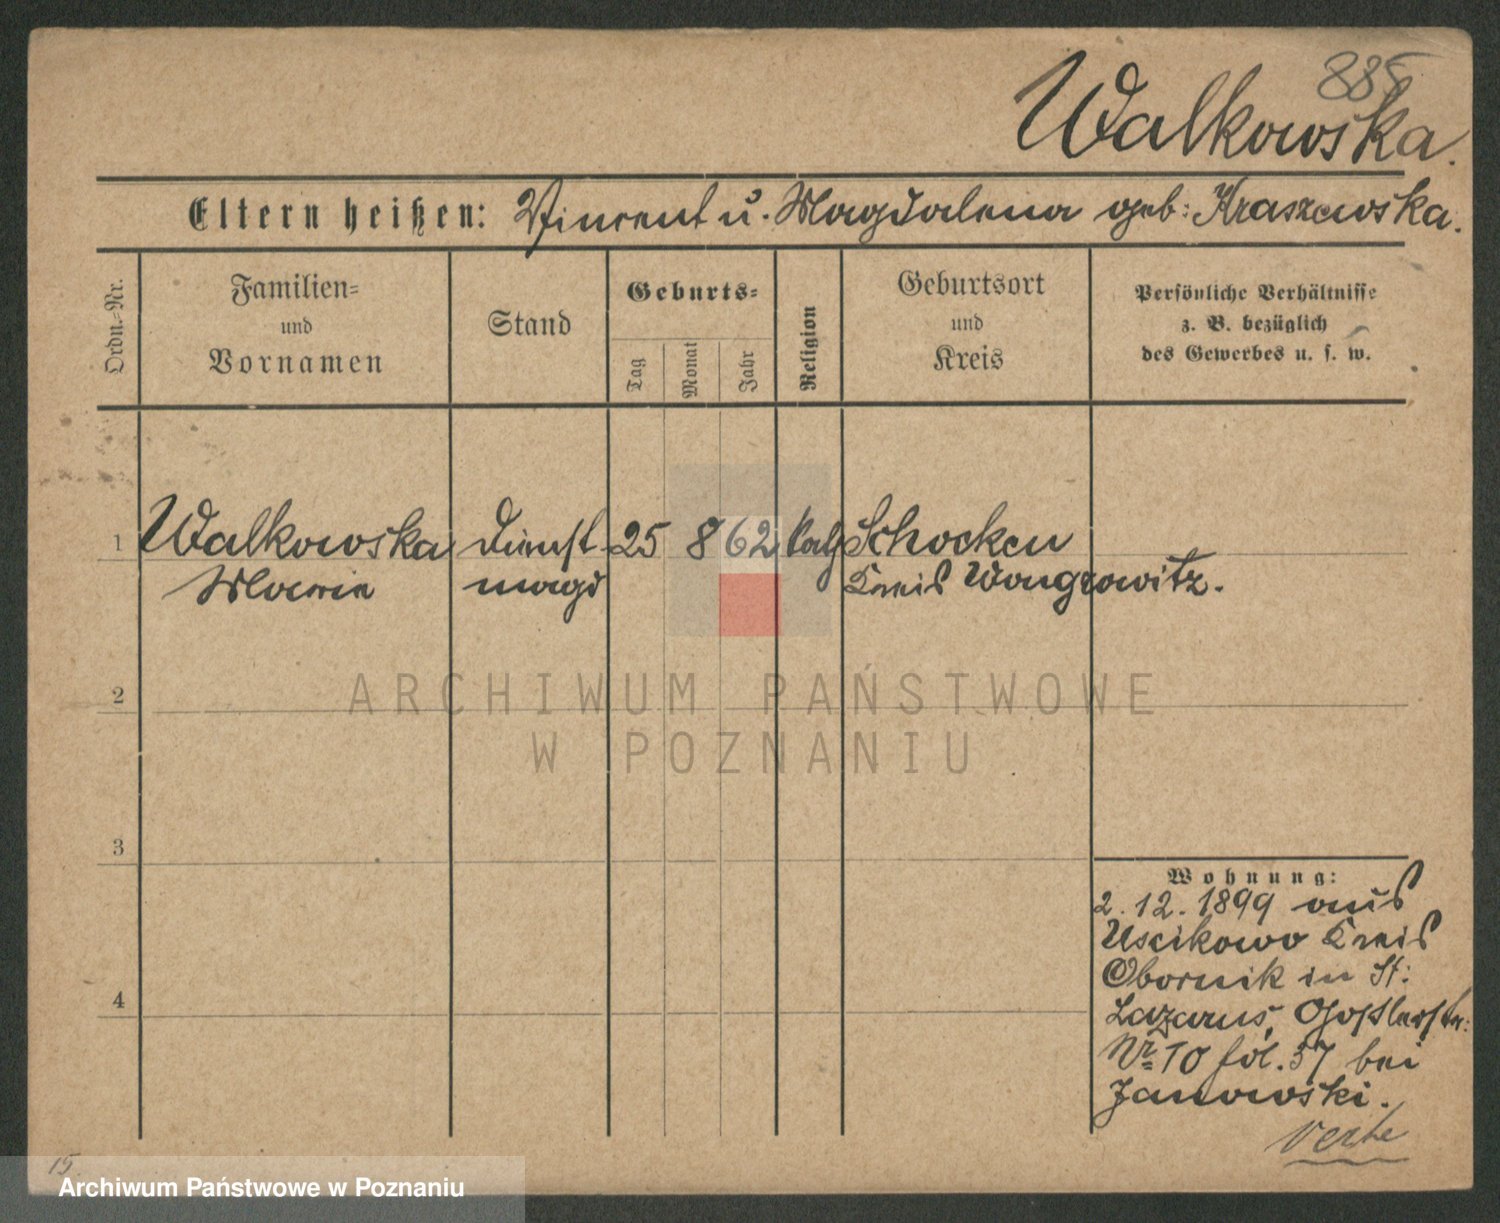 885
Walkowska.
Eltern heißen: Vincent u. Magdalena geb: Kraszewska.
Ordn.-Nr.
Familien-
und
Vornamen
Stand
Geburts-
Tag
Monat
Jahr
Religion
Geburtsort
und
Kreis
Persönliche Verhältnisse
z. B. bezüglich
des Gewerbes u. s. w.
1 Walkowska Dienst- 25 8 62 kath Schocken
Maria magd Kreis Wongrowitz.
2
3
4
Wohnung:
2.12.1899 aus
Uscikowo Kreis
Obornik in St:
Lazarus, Goßlerstr:
Nr 10 fol. 57 bei
Janowski.
verte
15
ARCHIWUM PAŃSTWOWE
W POZNANIU
Archiwum Państwowe w Poznaniu